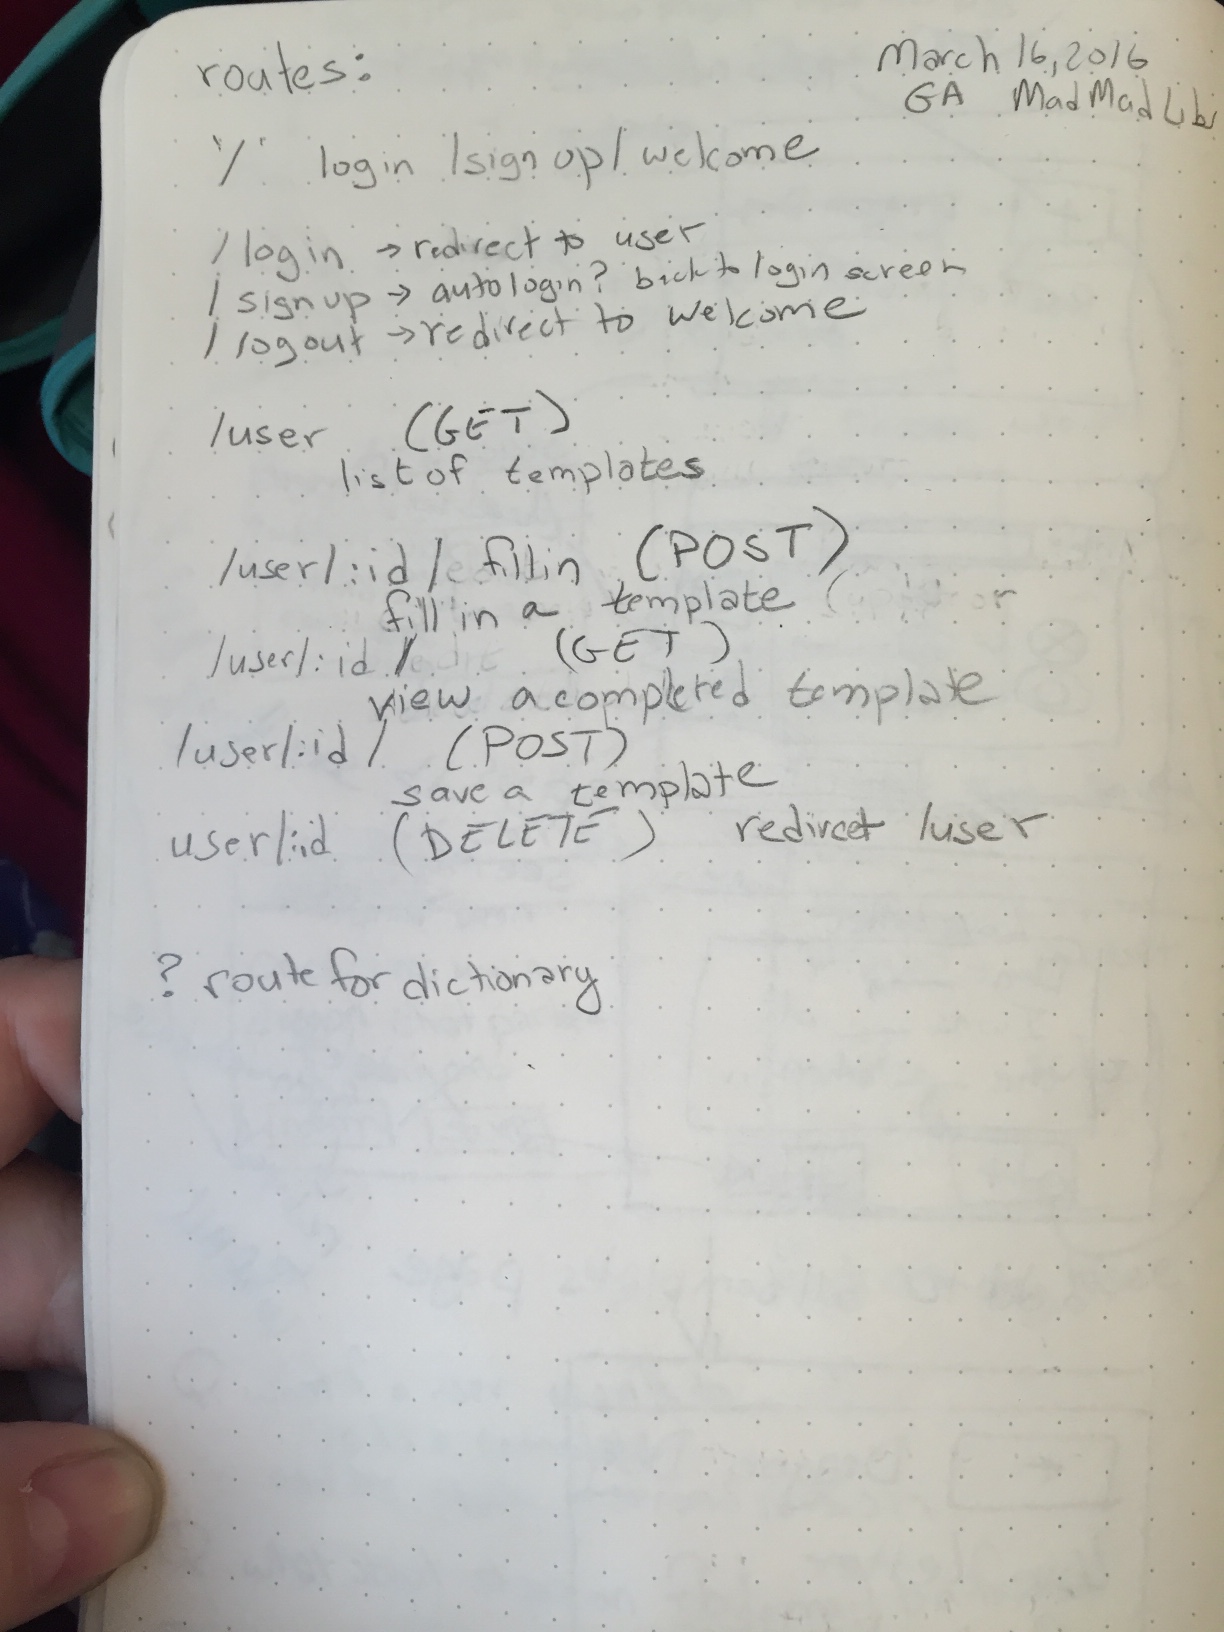 routes:
March 16, 2016
GA Mad Mad Libs
'/' login /sign up/ welcome
/login → redirect to user
/signup → autologin? back to login screen
/logout → redirect to welcome
/user (GET)
list of templates
/user/:id/ fillin (POST)
fill in a template
/user/:id/ (GET)
view a completed template
/user/:id/ (POST)
save a template
user/:id (DELETE) redircet /user
? route for dictionary